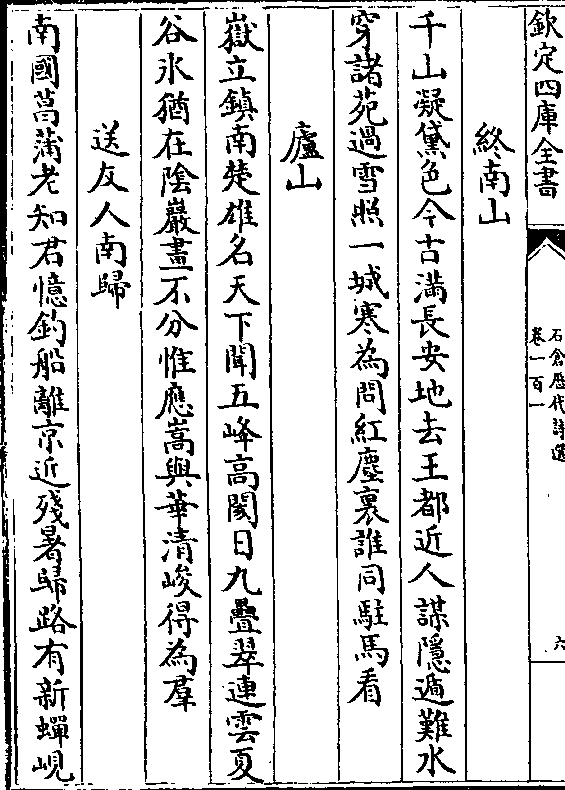 欽定四庫全書
石倉歷代詩選
卷一百一
六
終南山
千山凝黛色今古滿長安地去王都近人謀隱遁難水
穿諸苑過雪照一城寒為問紅塵裏誰同駐馬看
廬山
嶽立鎮南楚雄名天下聞五峰高閡日九疊翠連雲夏
谷氷猶在陰巖晝不分惟應嵩與華清峻得為羣
送友人南歸
南國菖蒲老知君憶釣船離京近殘暑歸路有新蟬峴